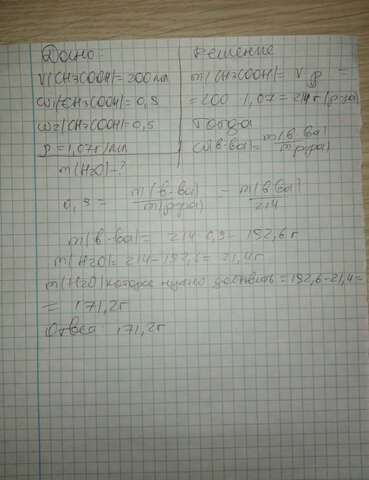 Дано
V(CH3COOH)=200мл
ω1(CH3COOH)=0,9
ω2(CH3COOH)=0,5
ρ=1,07г/мл
m(H2O)-?
Решение
m(CH3COOH)= V ρ =
=200 1,07=214г (р-ра)
Тогда
ω(в-ва)= m(в-ва)/m(р-ра)
0,9 = m(в-ва)/m(р-ра) = m(в-ва)/214
m(в-ва)= 214 0,9=192,6г
m(H2O)=214-192,6=21,4г
m(H2O) которое нужно добавить=192,6-21,4=
= 171,2г
Ответ 171,2г